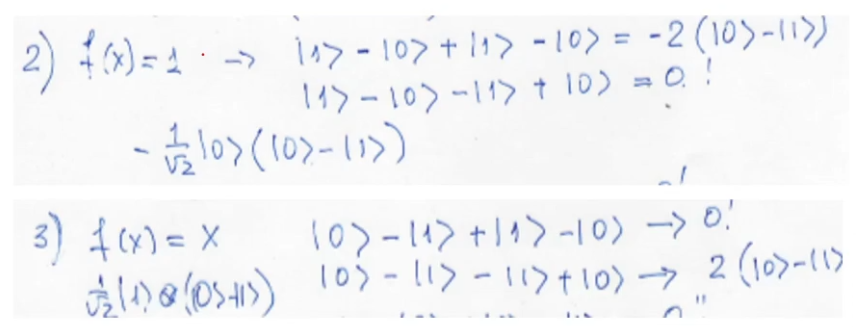 2) f(x) = 1 → |1> - |0> + |1> - |0> = -2 (|0> - |1>)
|1> - |0> - |1> + |0> = 0 !
- 1/√2 |0> (|0> - |1>)
3) f(x) = x |0> - |1> + |1> - |0> → 0!
1/√2 |1> ⊗ (|0> - |1>) |0> - |1> - |1> + |0> → 2 (|0> - |1>